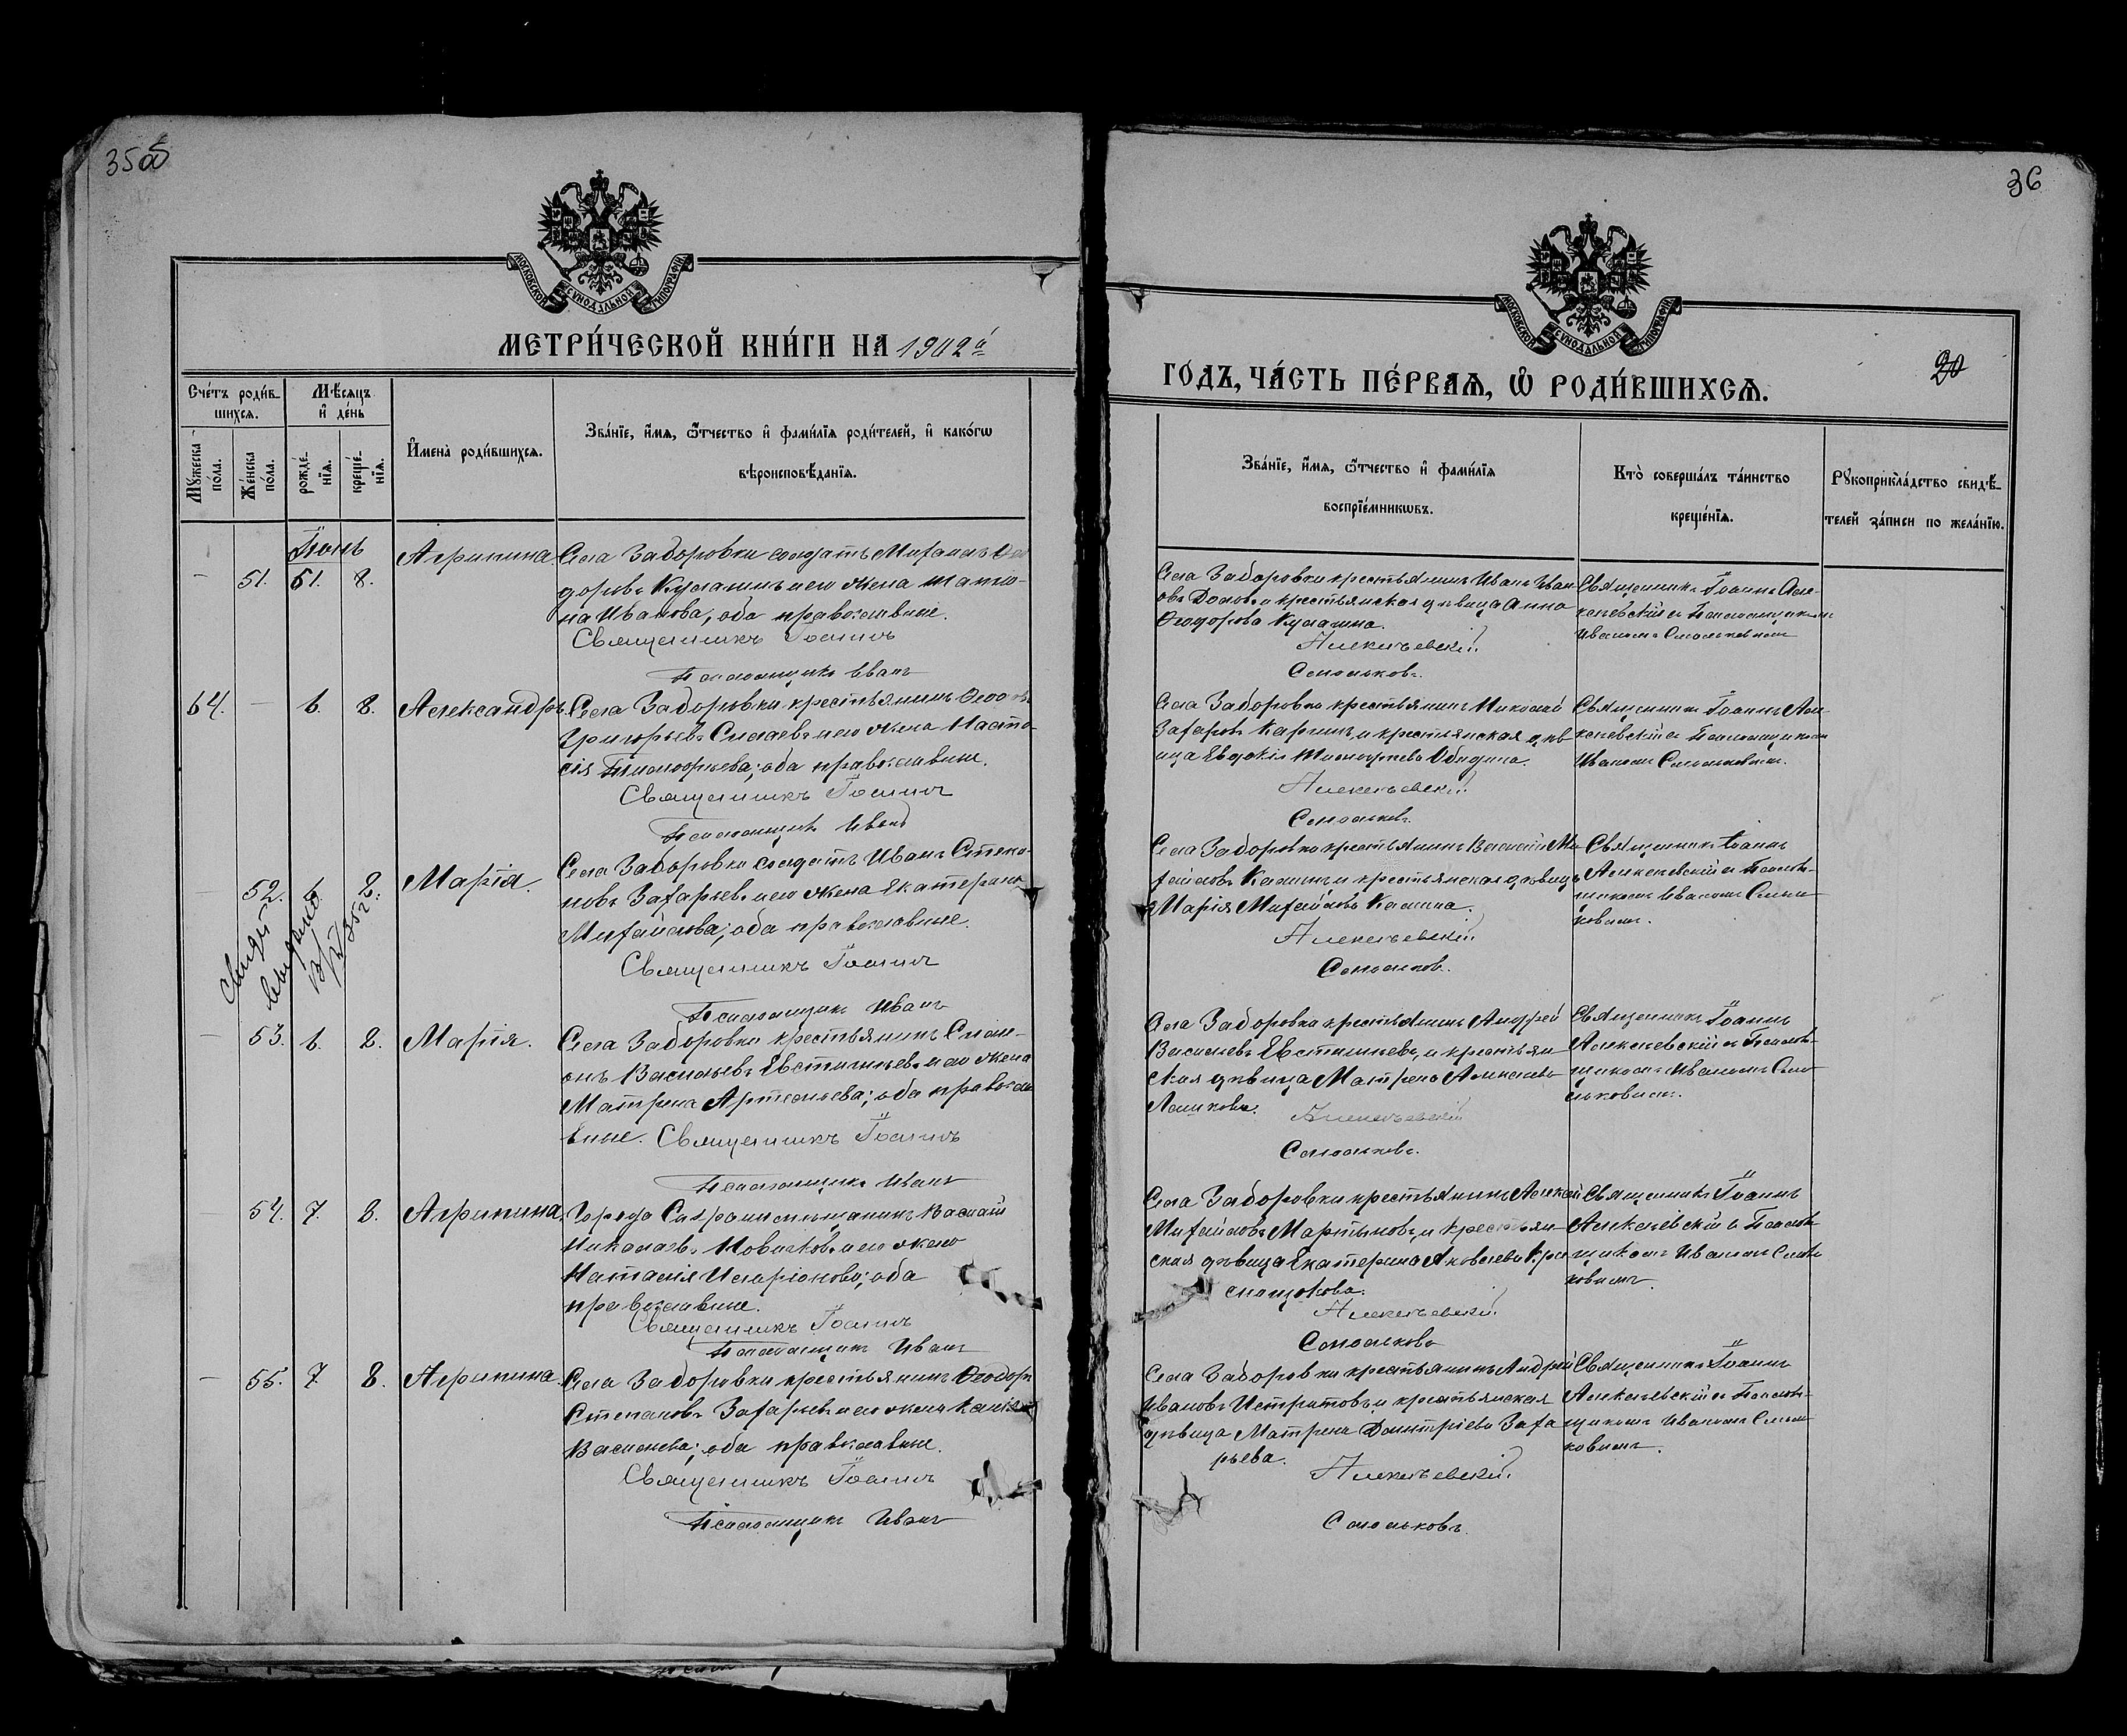 35об
МОСКОВСКОЙ СѴНОДАЛЬНОЙ ТИПОГРАФІИ
МЕТРИ́ЧЕСКОЙ КНИ́ГИ НА 1902й
Сче́тъ роди́в-
шихся.
Мѣ́сяцъ
и҆ де́нь
Мꙋжеска
по́ла.
Же́нска
по́ла.
рожде́-
нїѧ.
креще́-
нїѧ.
И҆мена̀ роди́вшихсѧ.
Зва́нїе, и҆́мѧ, ѻ҆́тчество и҆ фами́лїѧ роди́телей, и҆ како́гѡ
вѣроисповѣ́данїѧ.
Іюнь
51. 8. Агрипина. Села Заборовки солдатъ Михаилъ Ѳео
доровъ Кулагинъ и его жена Татіа-
на Иванова; оба православные.
Священникъ Іоаннъ
Псаломщикъ Иванъ
64. — 6. 8. Александръ. Села Заборовки крестьянинъ
Григорьевъ и его жена Наста-
сія оба православные.
Священникъ Іоаннъ
Псаломщикъ Иванъ
52. 6. Марія. Села Заборовки солдатъ Иванъ Степа-
новъ Захарьевъ и его жена Екатерина
Михайлова; оба православные.
Священникъ Іоаннъ
Псаломщикъ Иванъ
— 53. 6. 8. Марія. Села Заборовки крестьянинъ Симе-
онъ Васильевъ Евстигнеевъ и его жена
Матрена Артемьева; оба правосла
вные. Священникъ Іоаннъ
Псаломщикъ Иванъ
— 54. 7. 8. Агрипина. Города Сызрани мѣщанинъ Василій
Николаевъ Новиковъ и его жена
Наталія Иларіонова; оба
православные.
Священникъ Іоаннъ
Псаломщикъ Иванъ
— 55. 7. 8. Агрипина. Села Заборовки крестьянинъ Ѳеодоръ
Степановъ Захарьевъ и его жена
Васильева; оба православные.
Священникъ Іоаннъ
Псаломщикъ Иванъ
36
МОСКОВСКОЙ СѴНОДАЛЬНОЙ ТИПОГРАФІИ
20
ГО́ДЪ, ЧА́СТЬ ПЕ́РВАѦ, Ѡ҆ РОДИ́ВШИХСѦ.
Зва́нїе, и҆́мѧ, ѻ҆́тчество и҆ фами́лїѧ
воспрїе́мникѡвъ.
Кто̀ соверша́лъ та́инство
креще́нїѧ.
Рꙋкоприкла́дство свидѣ́-
телей за́писи по жела́нїю.
Села Заборовки крестьянинъ Иванъ Иван
овъ и крестьянская дѣвица Анна
Ѳеодорова Кулагина.
Алексѣевскій.
Смольковъ.
Священникъ Іоаннъ Але-
ксѣевскій съ Псаломщикомъ
Иваномъ Смольковымъ
Села Заборовки крестьянинъ Николай
Захаровъ и крестьянская дѣв
ица Евдокія
Алексѣевскій.
Смольковъ.
Священникъ Іоаннъ Але-
ксѣевскій съ Псаломщикомъ
Иваномъ Смольковымъ.
Села Заборовки крестьянинъ Василій Ми
хайловъ Калинъ и крестьянская дѣвица
Марія Михайлова Калина.
Алексѣевскій.
Смольковъ.
Священникъ Іоаннъ
Алексѣевскій съ Псалом-
щикомъ Иваномъ Смоль
ковымъ.
Села Заборовки крестьянинъ Андрей
Васильевъ Евстигнеевъ, и крестьян
ская дѣвица Матрена Алексѣева
Алексѣевскій
Смольковъ.
Священникъ Іоаннъ
Алексѣевскій съ Псалом-
щикомъ Иваномъ Смо
льковымъ.
Села Заборовки крестьянинъ Алексѣй
Михайловъ Мартыновъ, и крестьян
ская дѣвица Екатерина Яковлева Кра
снощокова.
Алексѣевскій.
Смольковъ
Священникъ Іоаннъ
Алексѣевскій съ Псалом-
щикомъ Иваномъ Смоль
ковымъ.
Села Заборовки крестьянинъ Андрей
Ивановъ и крестьянская
дѣвица Матрена Димитріева Заха
рьева.
Алексѣевскій.
Смольковъ.
Священникъ Іоаннъ
Алексѣевскій съ Псалом-
щикомъ Иваномъ Смоль
ковымъ.